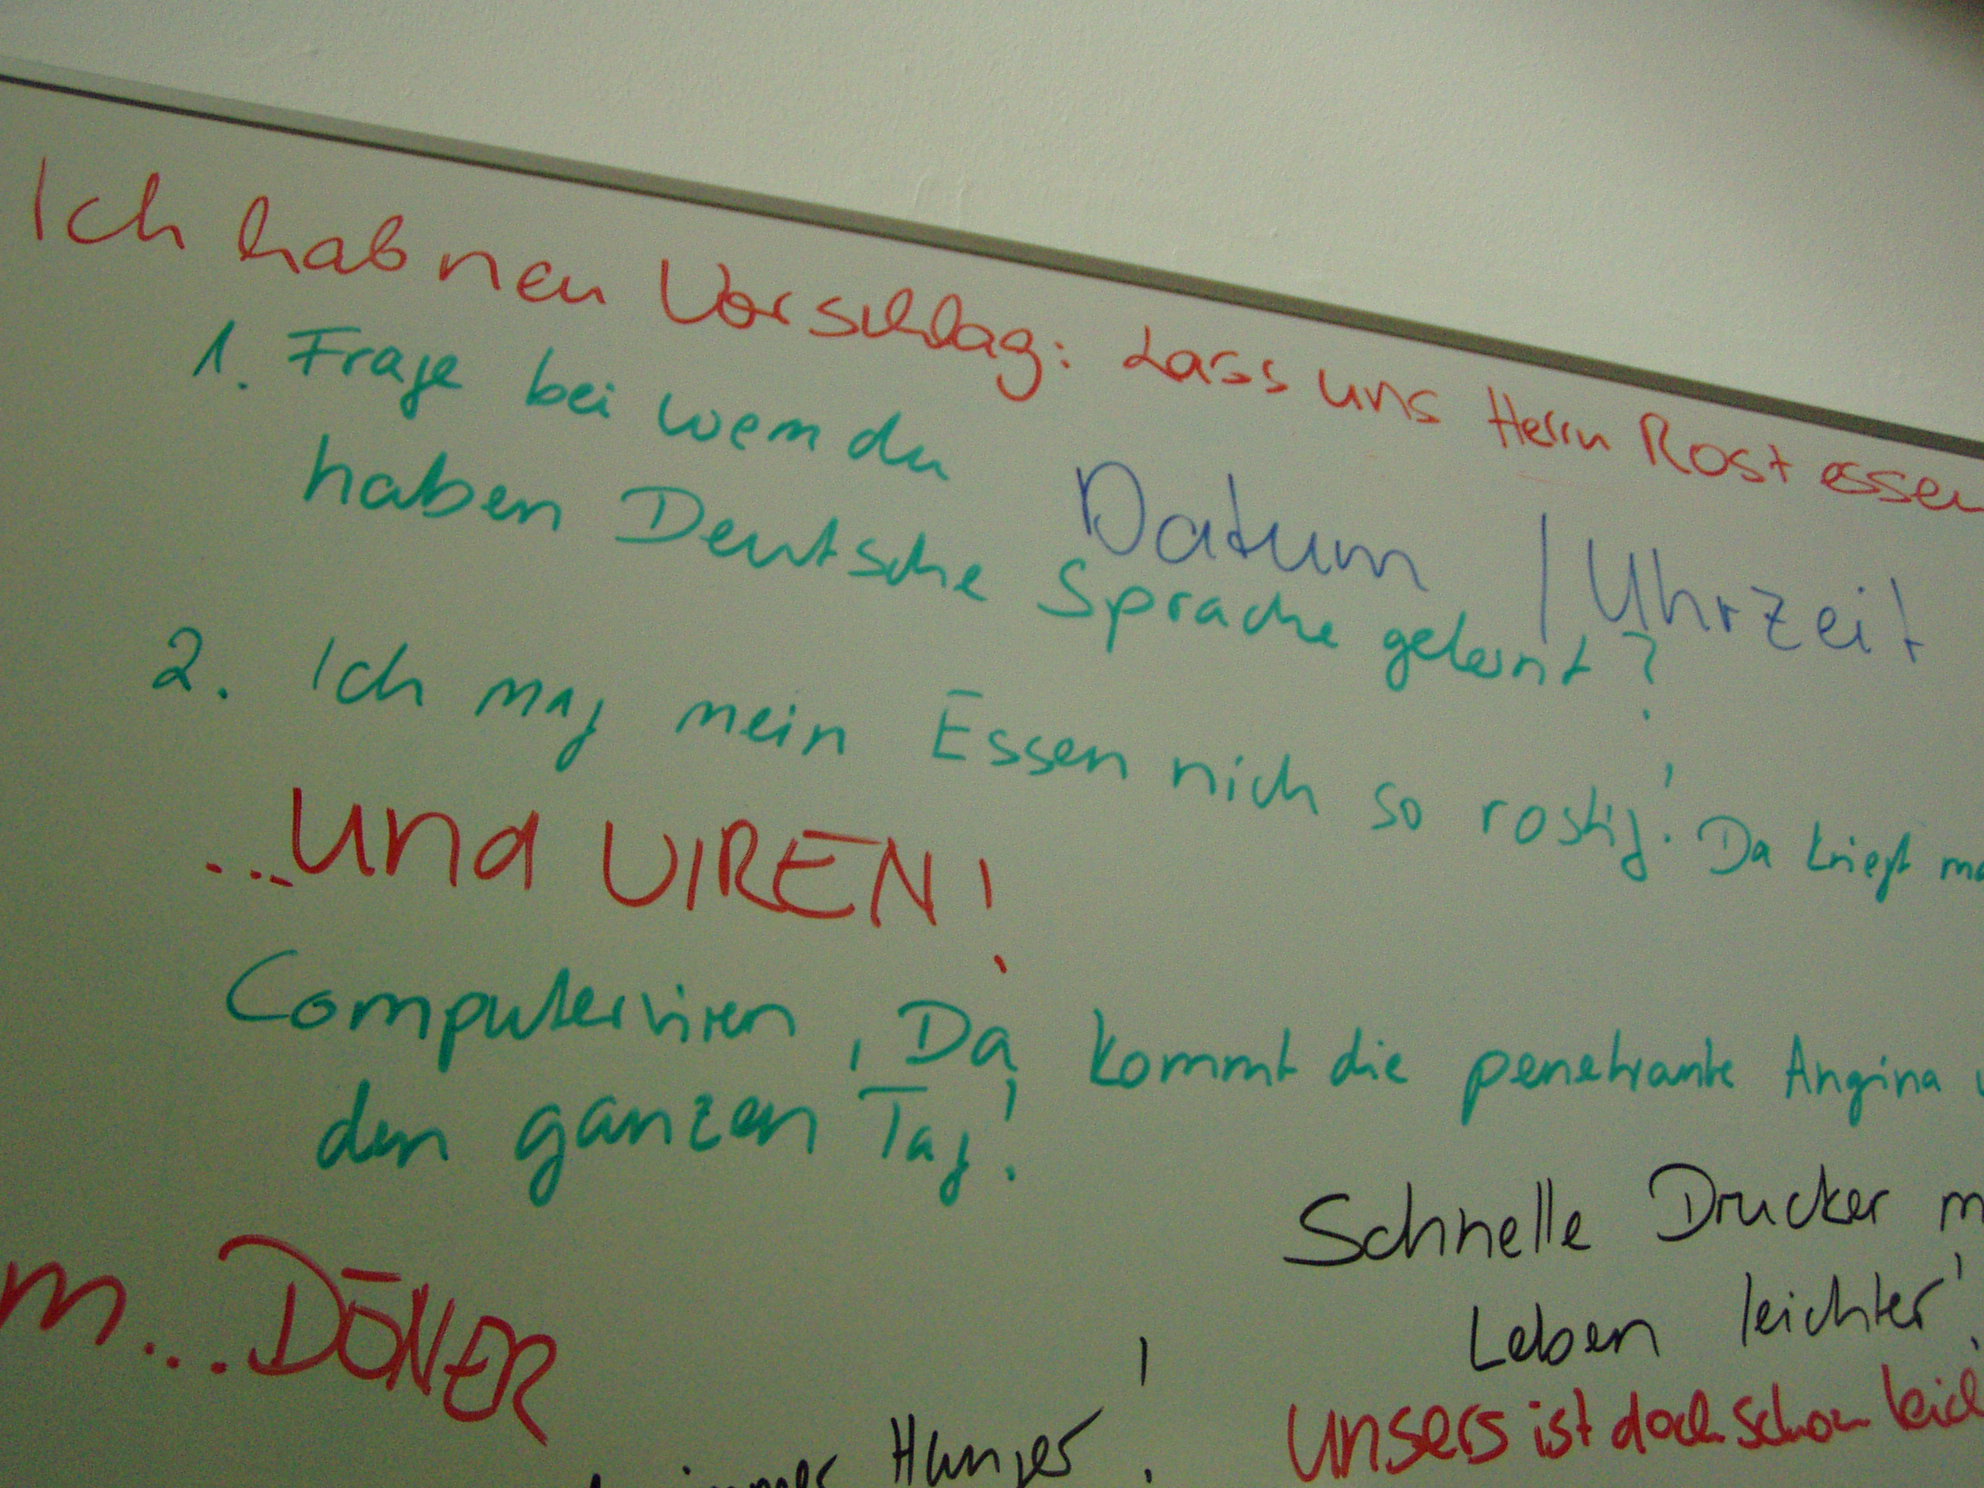 Ich hab nen Vorschlag: Lass uns Herrn Rost essen
1. Frage bei wem du
haben Deutsche Sprache gelernt?
Datum / Uhrzeit
2. Ich mag mein Essen nich so rostig! Da kriegt
...und VIREN!
Computerviren, Da kommt die penetrante Angina
den ganzen Tag!
Schnelle Drucker
Leben leichter!
m...DÖNER
Unsers ist doch schon
immer Hunger!